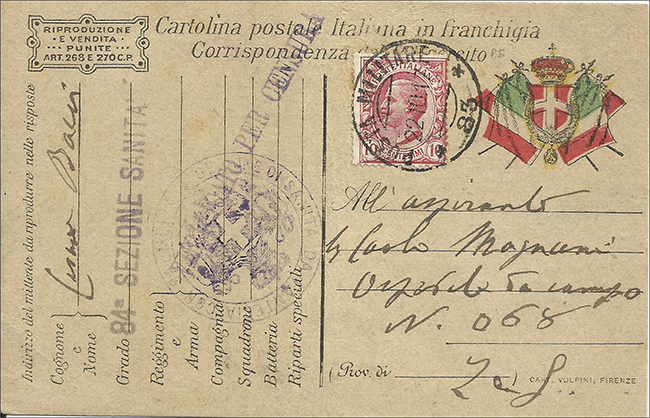 RIPRODUZIONE
E VENDITA
PUNITE
ART. 268 E 270 C.P.
Cartolina postale Italiana in franchigia
Corrispondenza
POSTA MILITARE
85
POSTE ITALIANE
10
CENTESIMI
PER CENSURA
Indirizzo del mittente da riprodurre nelle risposte
Cognome
e
Nome
Grado
84ª SEZIONE SANITA'
Reggimento
e
Arma
Compagnia
Squadrone
Batteria
Riparti speciali
DI SANITA DA
All' aspirante
Carlo Magnani
Osped. da campo
N. 068
(Prov. di
)
CART. VOLPINI, FIRENZE